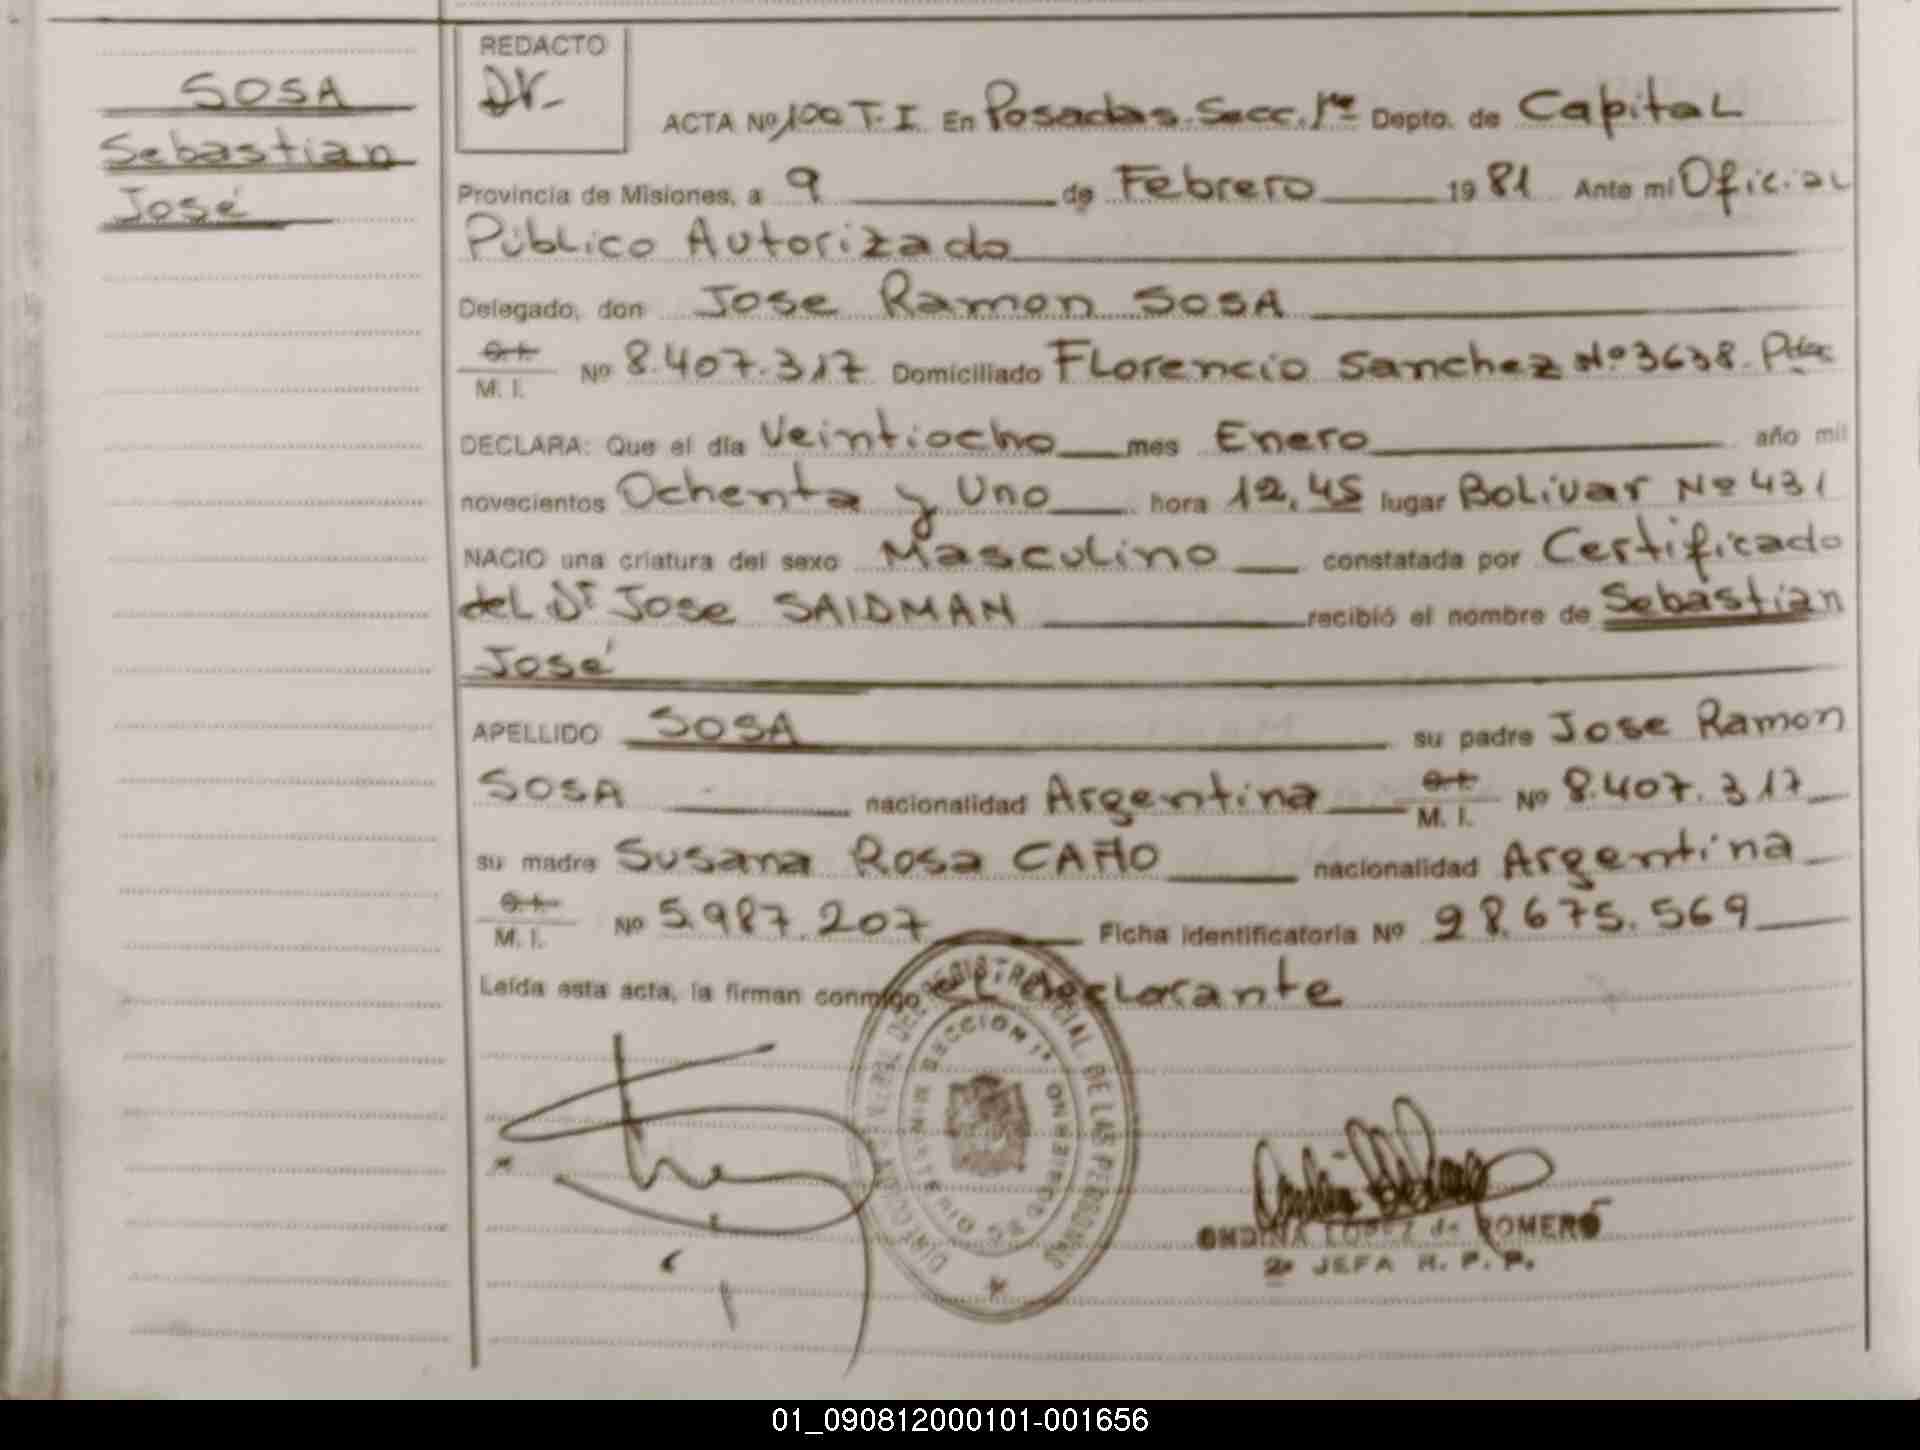 SOSA
Sebastian
José
REDACTO
ACTA Nº 100 T. I En Posadas. Secc. 1ra Depto. de Capital
Provincia de Misiones, a 9 de Febrero 1981 Ante mi Oficial
Público Autorizado
Delegado, don Jose Ramon SOSA
M. I. Nº 8.407.317 Domiciliado Florencio Sanchez Nº 3638.
DECLARA: Que el día Veintiocho mes Enero año mil
novecientos Ochenta y Uno hora 12,45 lugar Bolivar Nº 431
NACIO una criatura del sexo Masculino constatada por Certificado
del Dr Jose SAIDMAN recibió el nombre de Sebastian
José
APELLIDO SOSA su padre Jose Ramon
SOSA nacionalidad Argentina M. I. Nº 8.407.317
su madre Susana Rosa CAÑO nacionalidad Argentina
M. I. Nº 5.987.207 Ficha identificatoria Nº 28.675.569
Leída esta acta, la firman conmigo el declarante
SECCION 1ª
DE LAS PERSONAS
ONDINA LOPEZ de ROMERO
2º JEFA R. P. P.
01_090812000101-001656